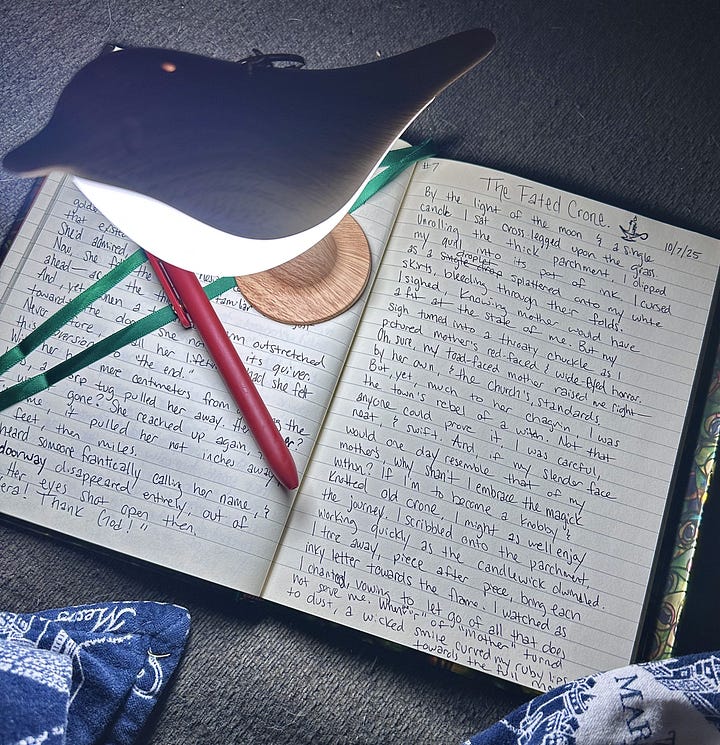 golde
that existe
She'd admired
Now, she
ahead—
And, yet when a
towards the door, she no arm outstretched
Never before its quiver.
this aversion to all her lifetime had she felt
Was her "the end."
mere centimeters from the
a sharp tug pulled her away. Her
gone? She reached up again,
time, it pulled her not inches away
feet, then miles.
heard someone frantically calling her name, &
doorway disappeared entirely, out of
Her eyes shot open then.
era! Thank God!"
#7
The Fated Crone.
10/7/25
By the light of the moon & a single
candle I sat cross legged upon the grass
Unrolling the thick parchment, I dipped
my quill into its pot of ink. I cursed
as a single drop droplet splattered onto my white
skirts, bleeding through their folds.
I sighed, knowing mother would have
a fit at the state of me. But my
sigh turned into a throaty chuckle as I
pictured mother's red-faced & wide-eyed horror.
Oh, sure, my toad-faced mother raised me right—
by her own, & the church's, standards.
But, yet, much to her chagrin, I was
the town's rebel of a witch. Not that
anyone could prove it. I was careful,
neat, & swift. And, if my slender face
would one day resemble that of my
mother's, why shan't I embrace the magick
within? If I'm to become a knobby &
knotted old crone, I might as well enjoy
the journey. I scribbled onto the parchment,
working quickly as the candlewick dwindled.
I tore away, piece after piece, bring each
inky letter towards the flame. I watched as
I chanted, vowing to let go of all that does
not serve me. When "r" of "mother" turned
to dust, a wicked smile furred my ruby lips
towards the full
Merry
MAR